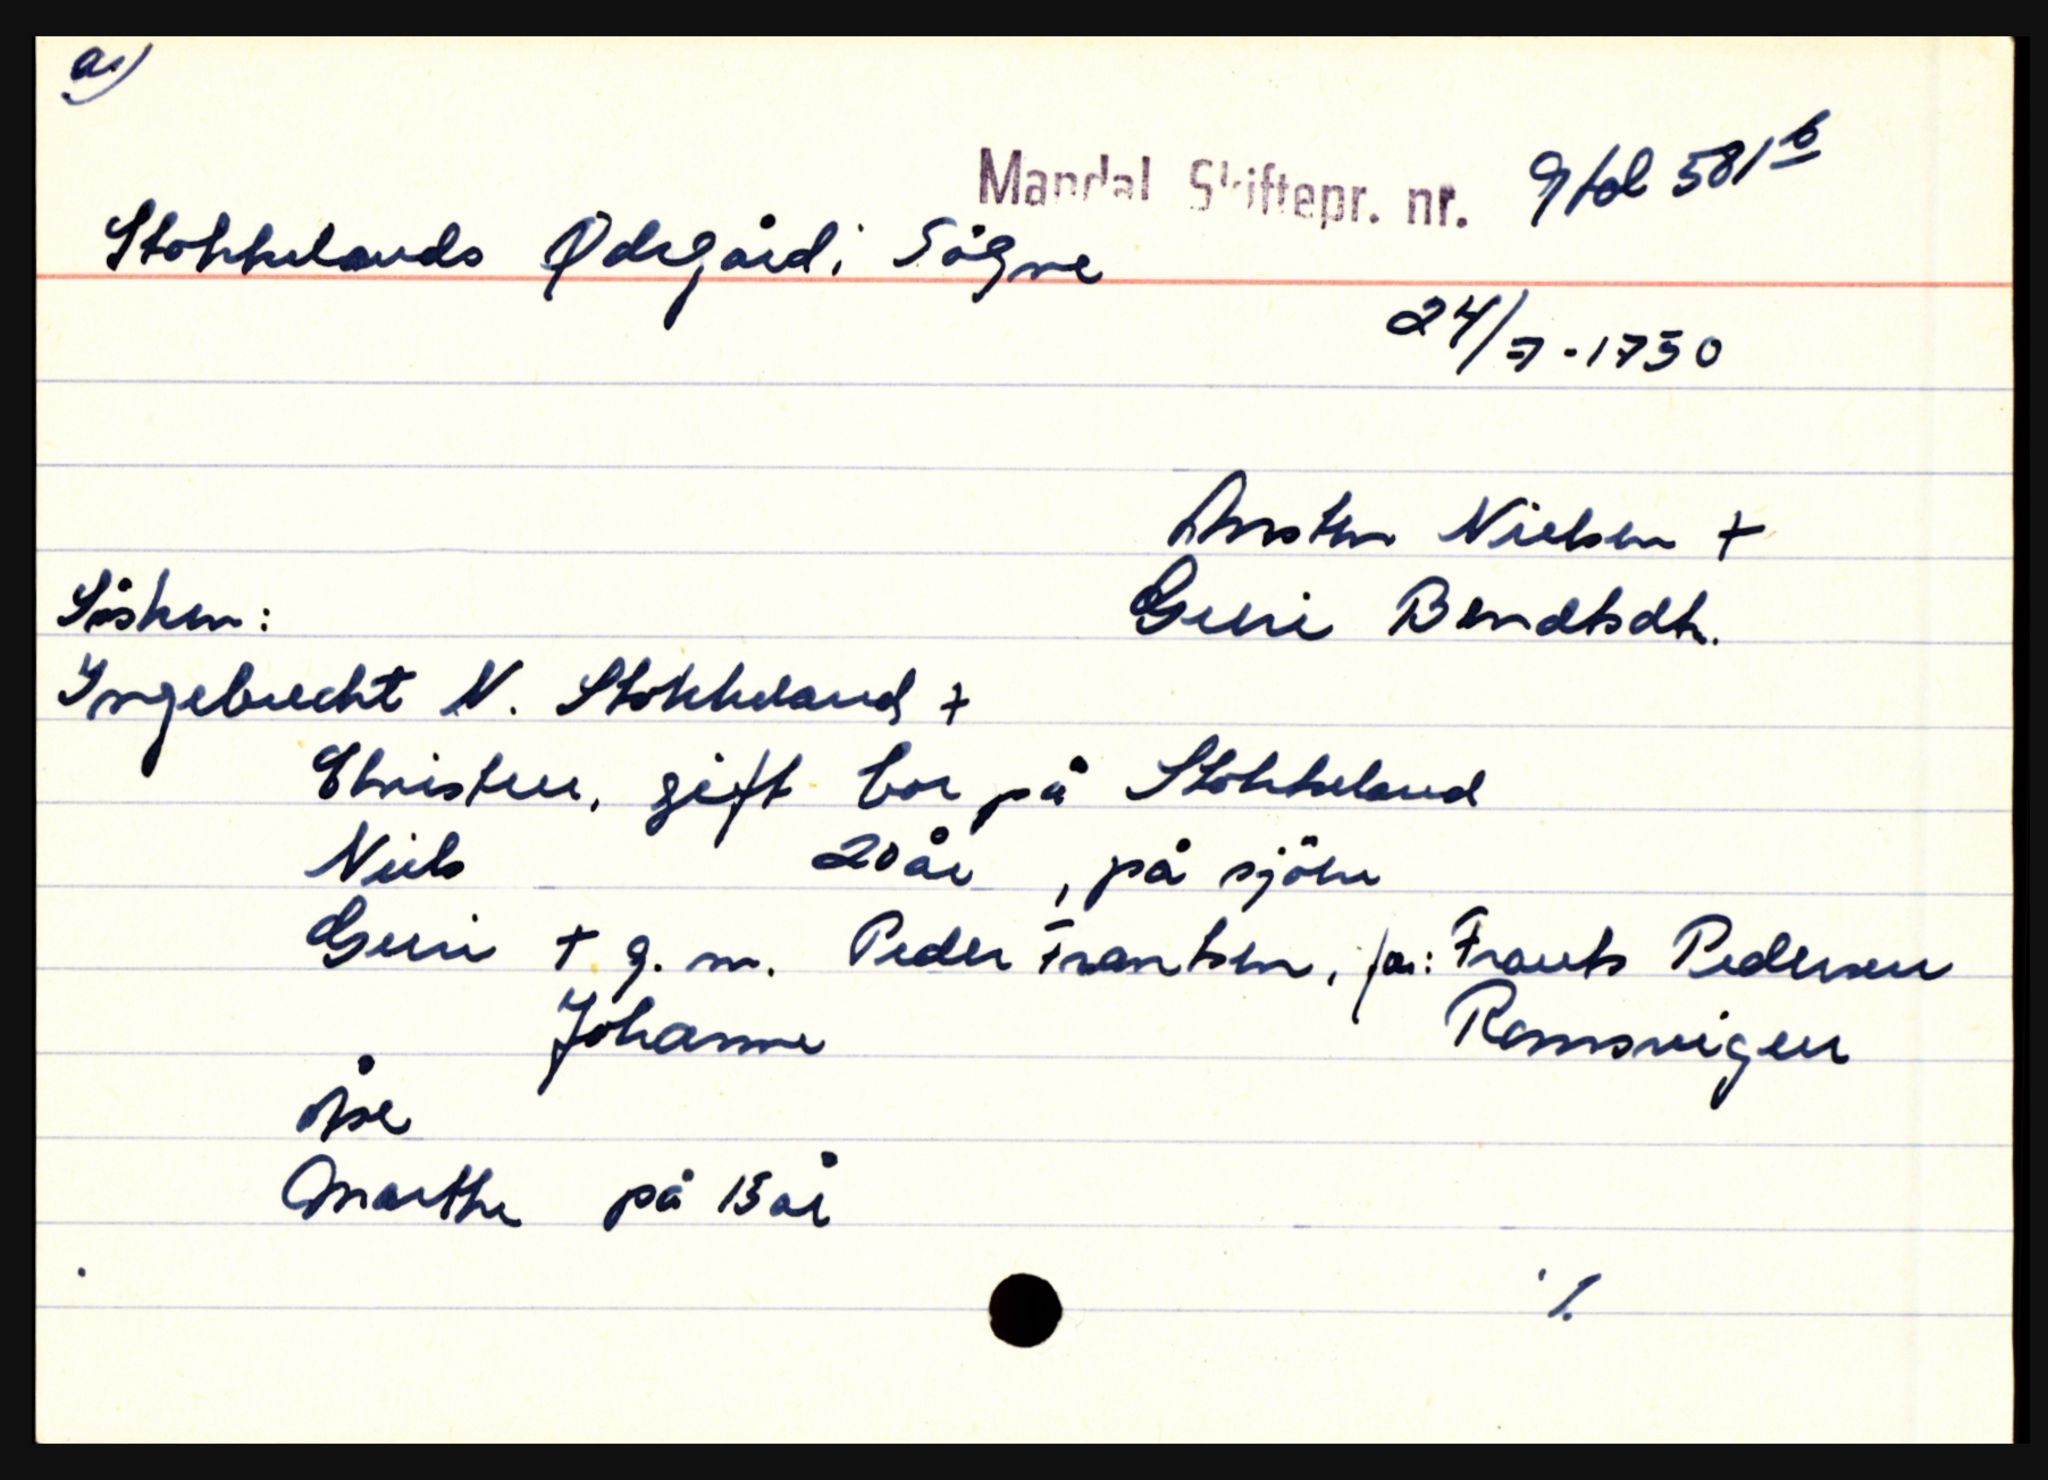 a)
Mandal Skiftepr. nr. 9 fol 581 b
Stokkelands Ødegård i Søgne
24/7-1750
Arsten Nielsen +
Søsken:
Guri Bendtsdtr.
Ingebrecht N. Stokkeland +
Christen, gift bor på Stokkeland
Niels 20 år, på sjöen
Guri + g. m. Peder Frantsen, far: Frants Pedersen
Johanne Romsvigen
Åse
Marthe på 15 år
./.